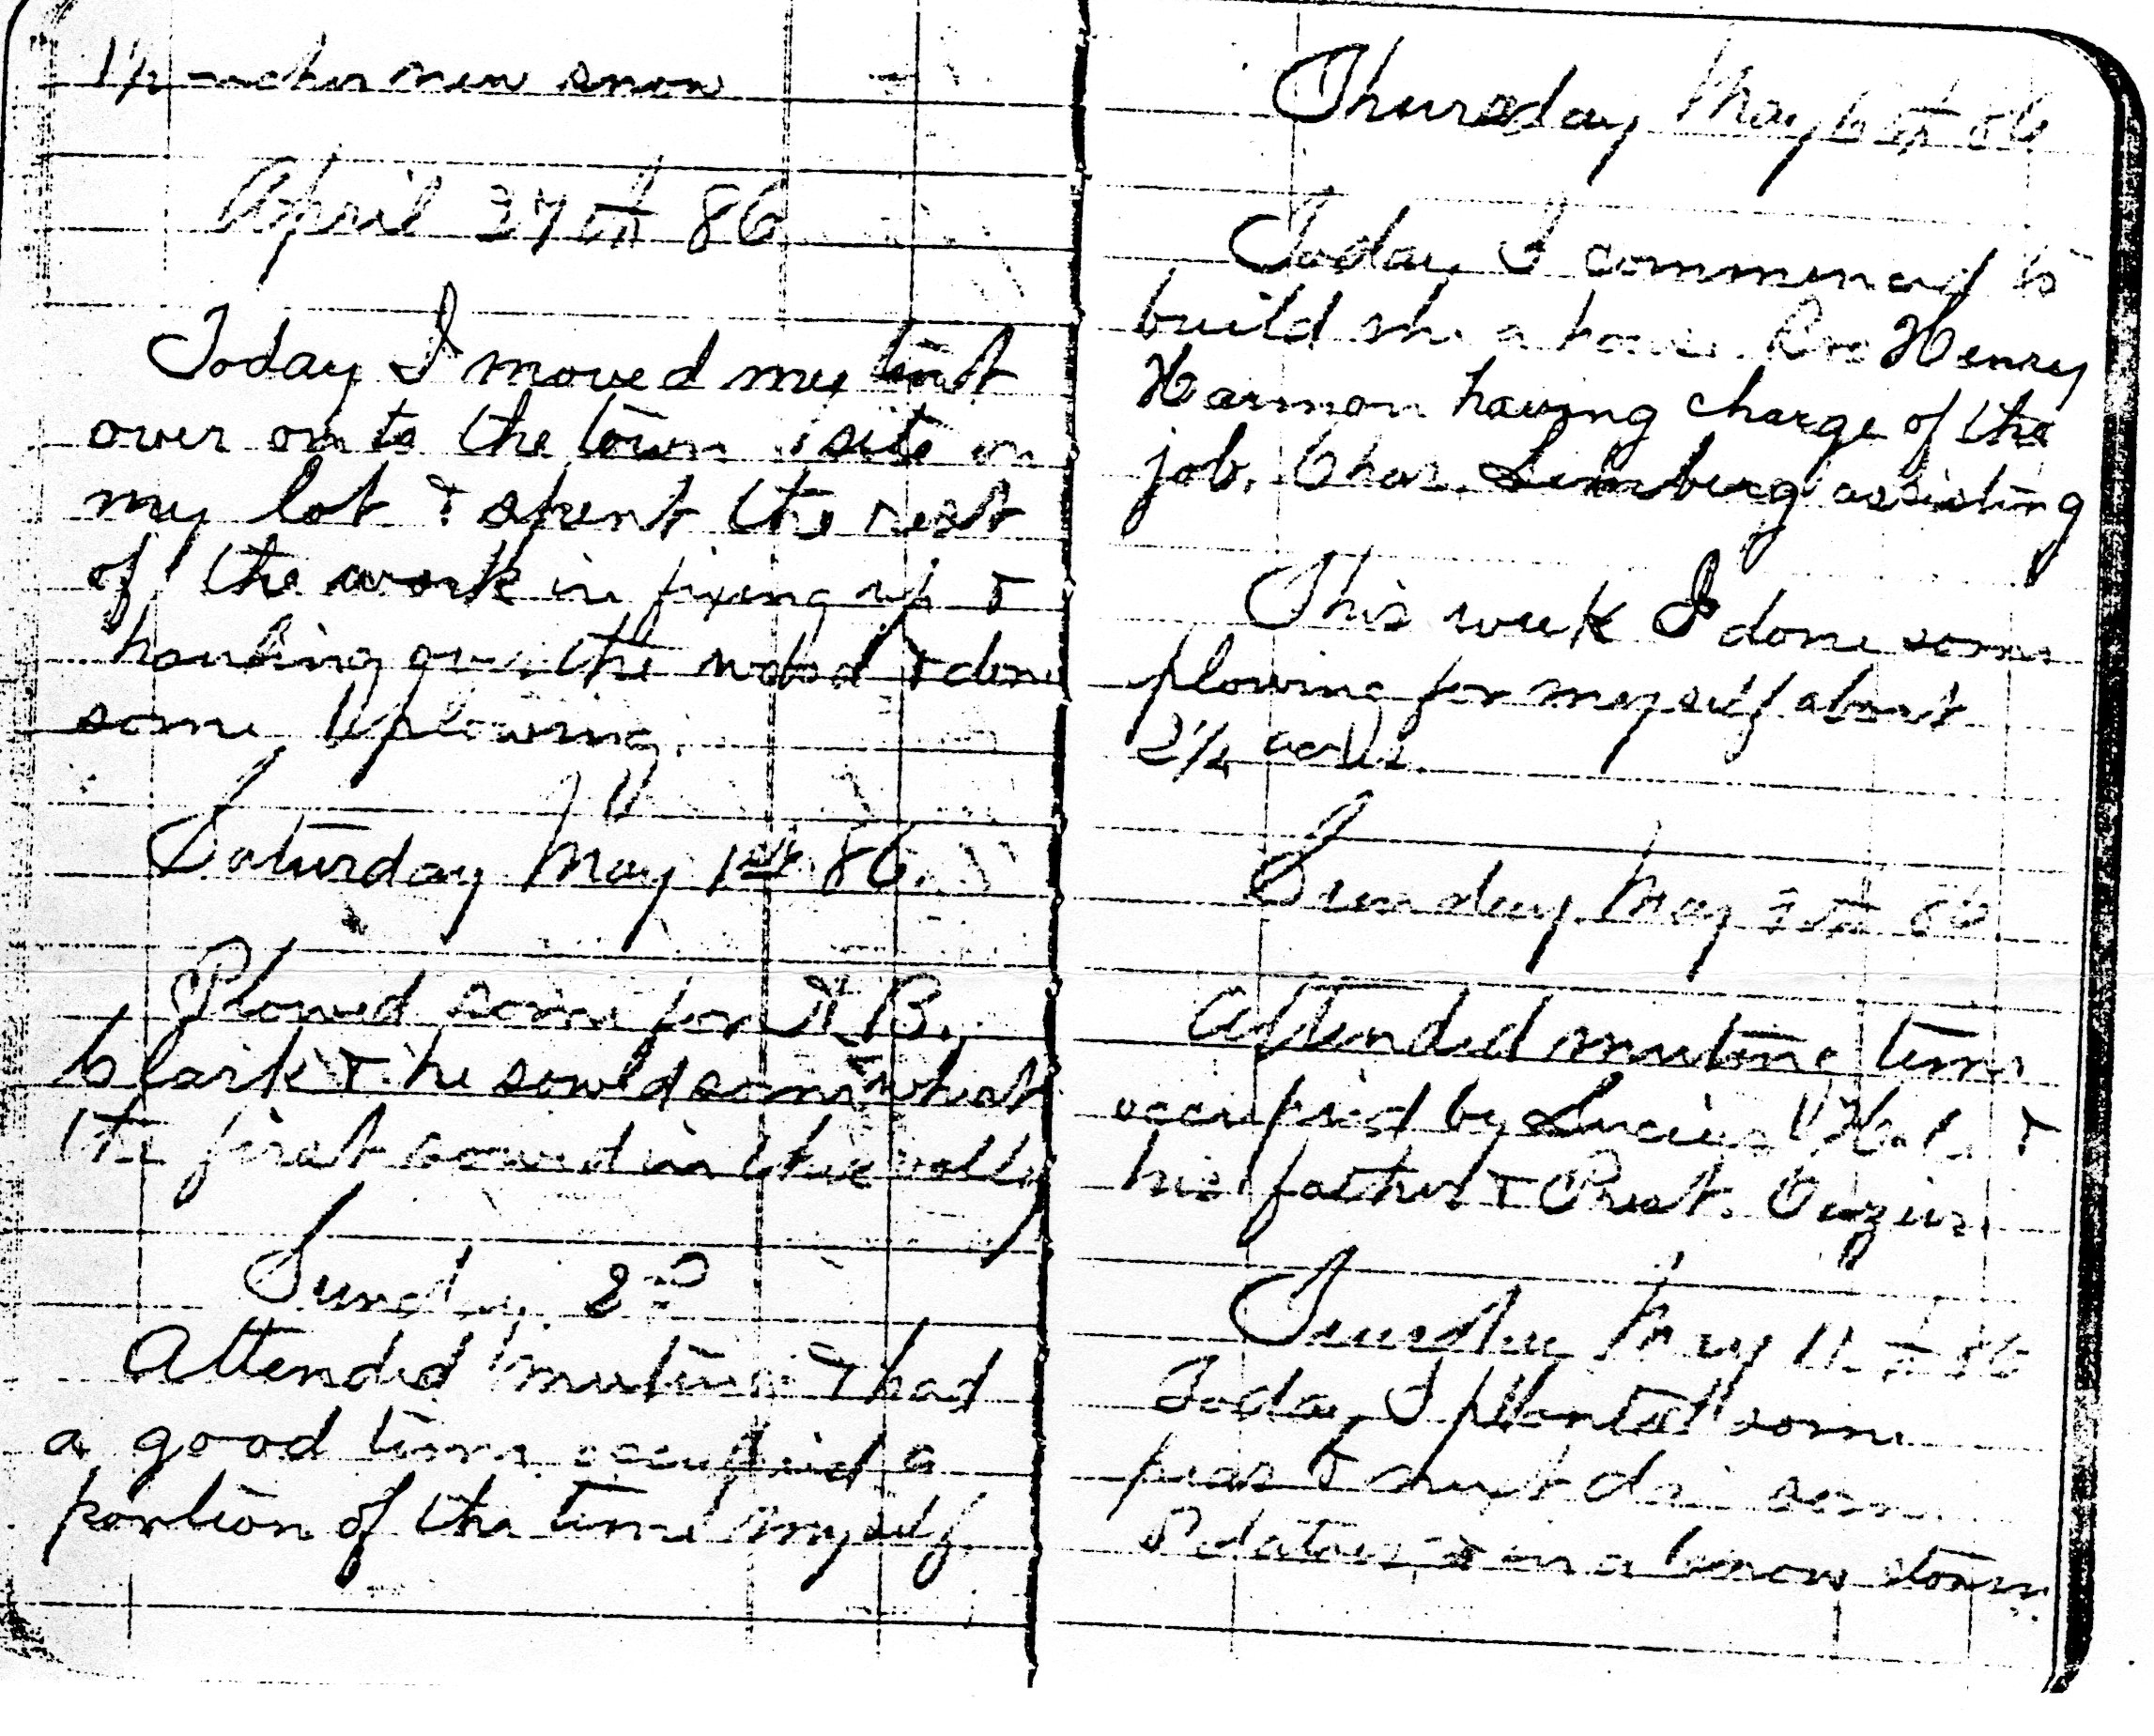 1½ inches new snow
April 27th 86
Today I moved my tent
over on to the town site on
my lot & spent the rest
of the work in fixing up &
hauling over the wood & done
some plowing.
Saturday May 1st 86.
Plowed some for B.
Clark & he sowed some wheat
the first sowed in this vally
Sunday 2nd
Attended meeting & had
a good time occupied a
portion of the time myself.
Thursday May 6th 86
Today I commenced to
build me a house Bro Henry
Harmon having charge of the
job. Chas. assisting
This week I done some
plowing for myself about
2¼ acres.
Sunday May 86
Attended meeting time
occupied by Lucius &
his father & Prest.
Tuesday May 11th 86
Today I planted some
peas & some
Potatoes in a snow storm